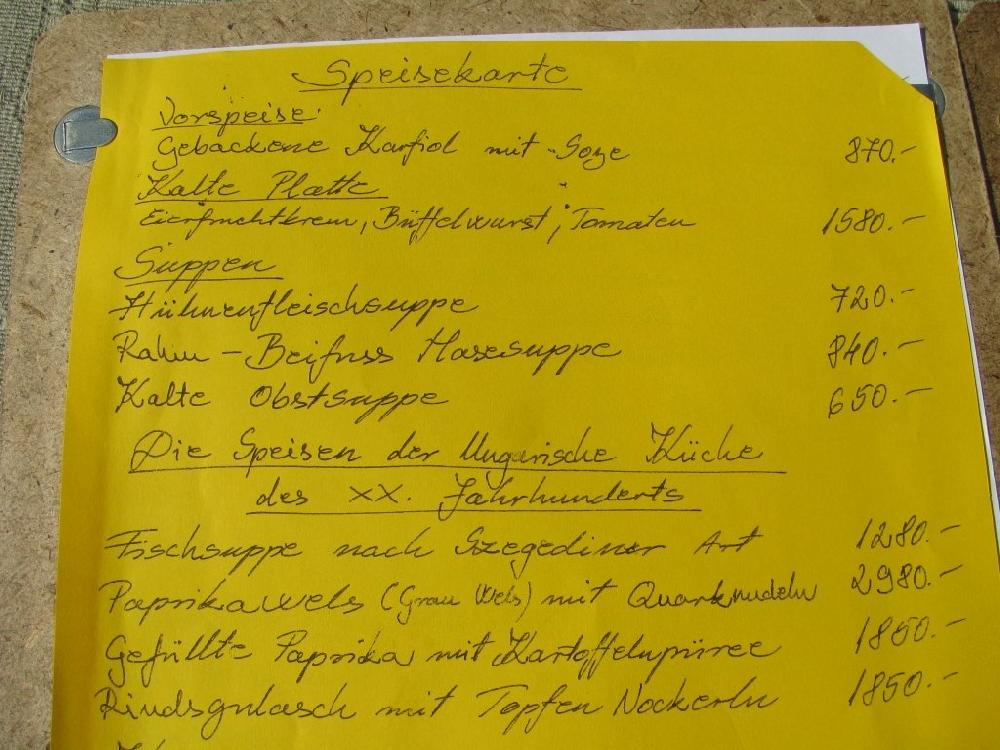 Speisekarte
Vorspeise:
Gebackene Karfiol mit Soze 870.-
Kalte Platte
Eierfruchtkrem, Büffelwurst, Tomaten 1580.-
Suppen
Hühnerfleischsuppe 720.-
Rahm - Beifuss Hasesuppe 840.-
Kalte Obstsuppe 650.-
Die Speisen der Ungarische Küche
des XX. Jahrhunderts
Fischsuppe nach Szegediner Art 1280.-
Paprikawels (Grau Wels) mit Quarknudeln 2980.-
Gefüllte Paprika mit Kartoffelnpüree 1850.-
Rindsgulasch mit Topfen Nockerln 1850.-